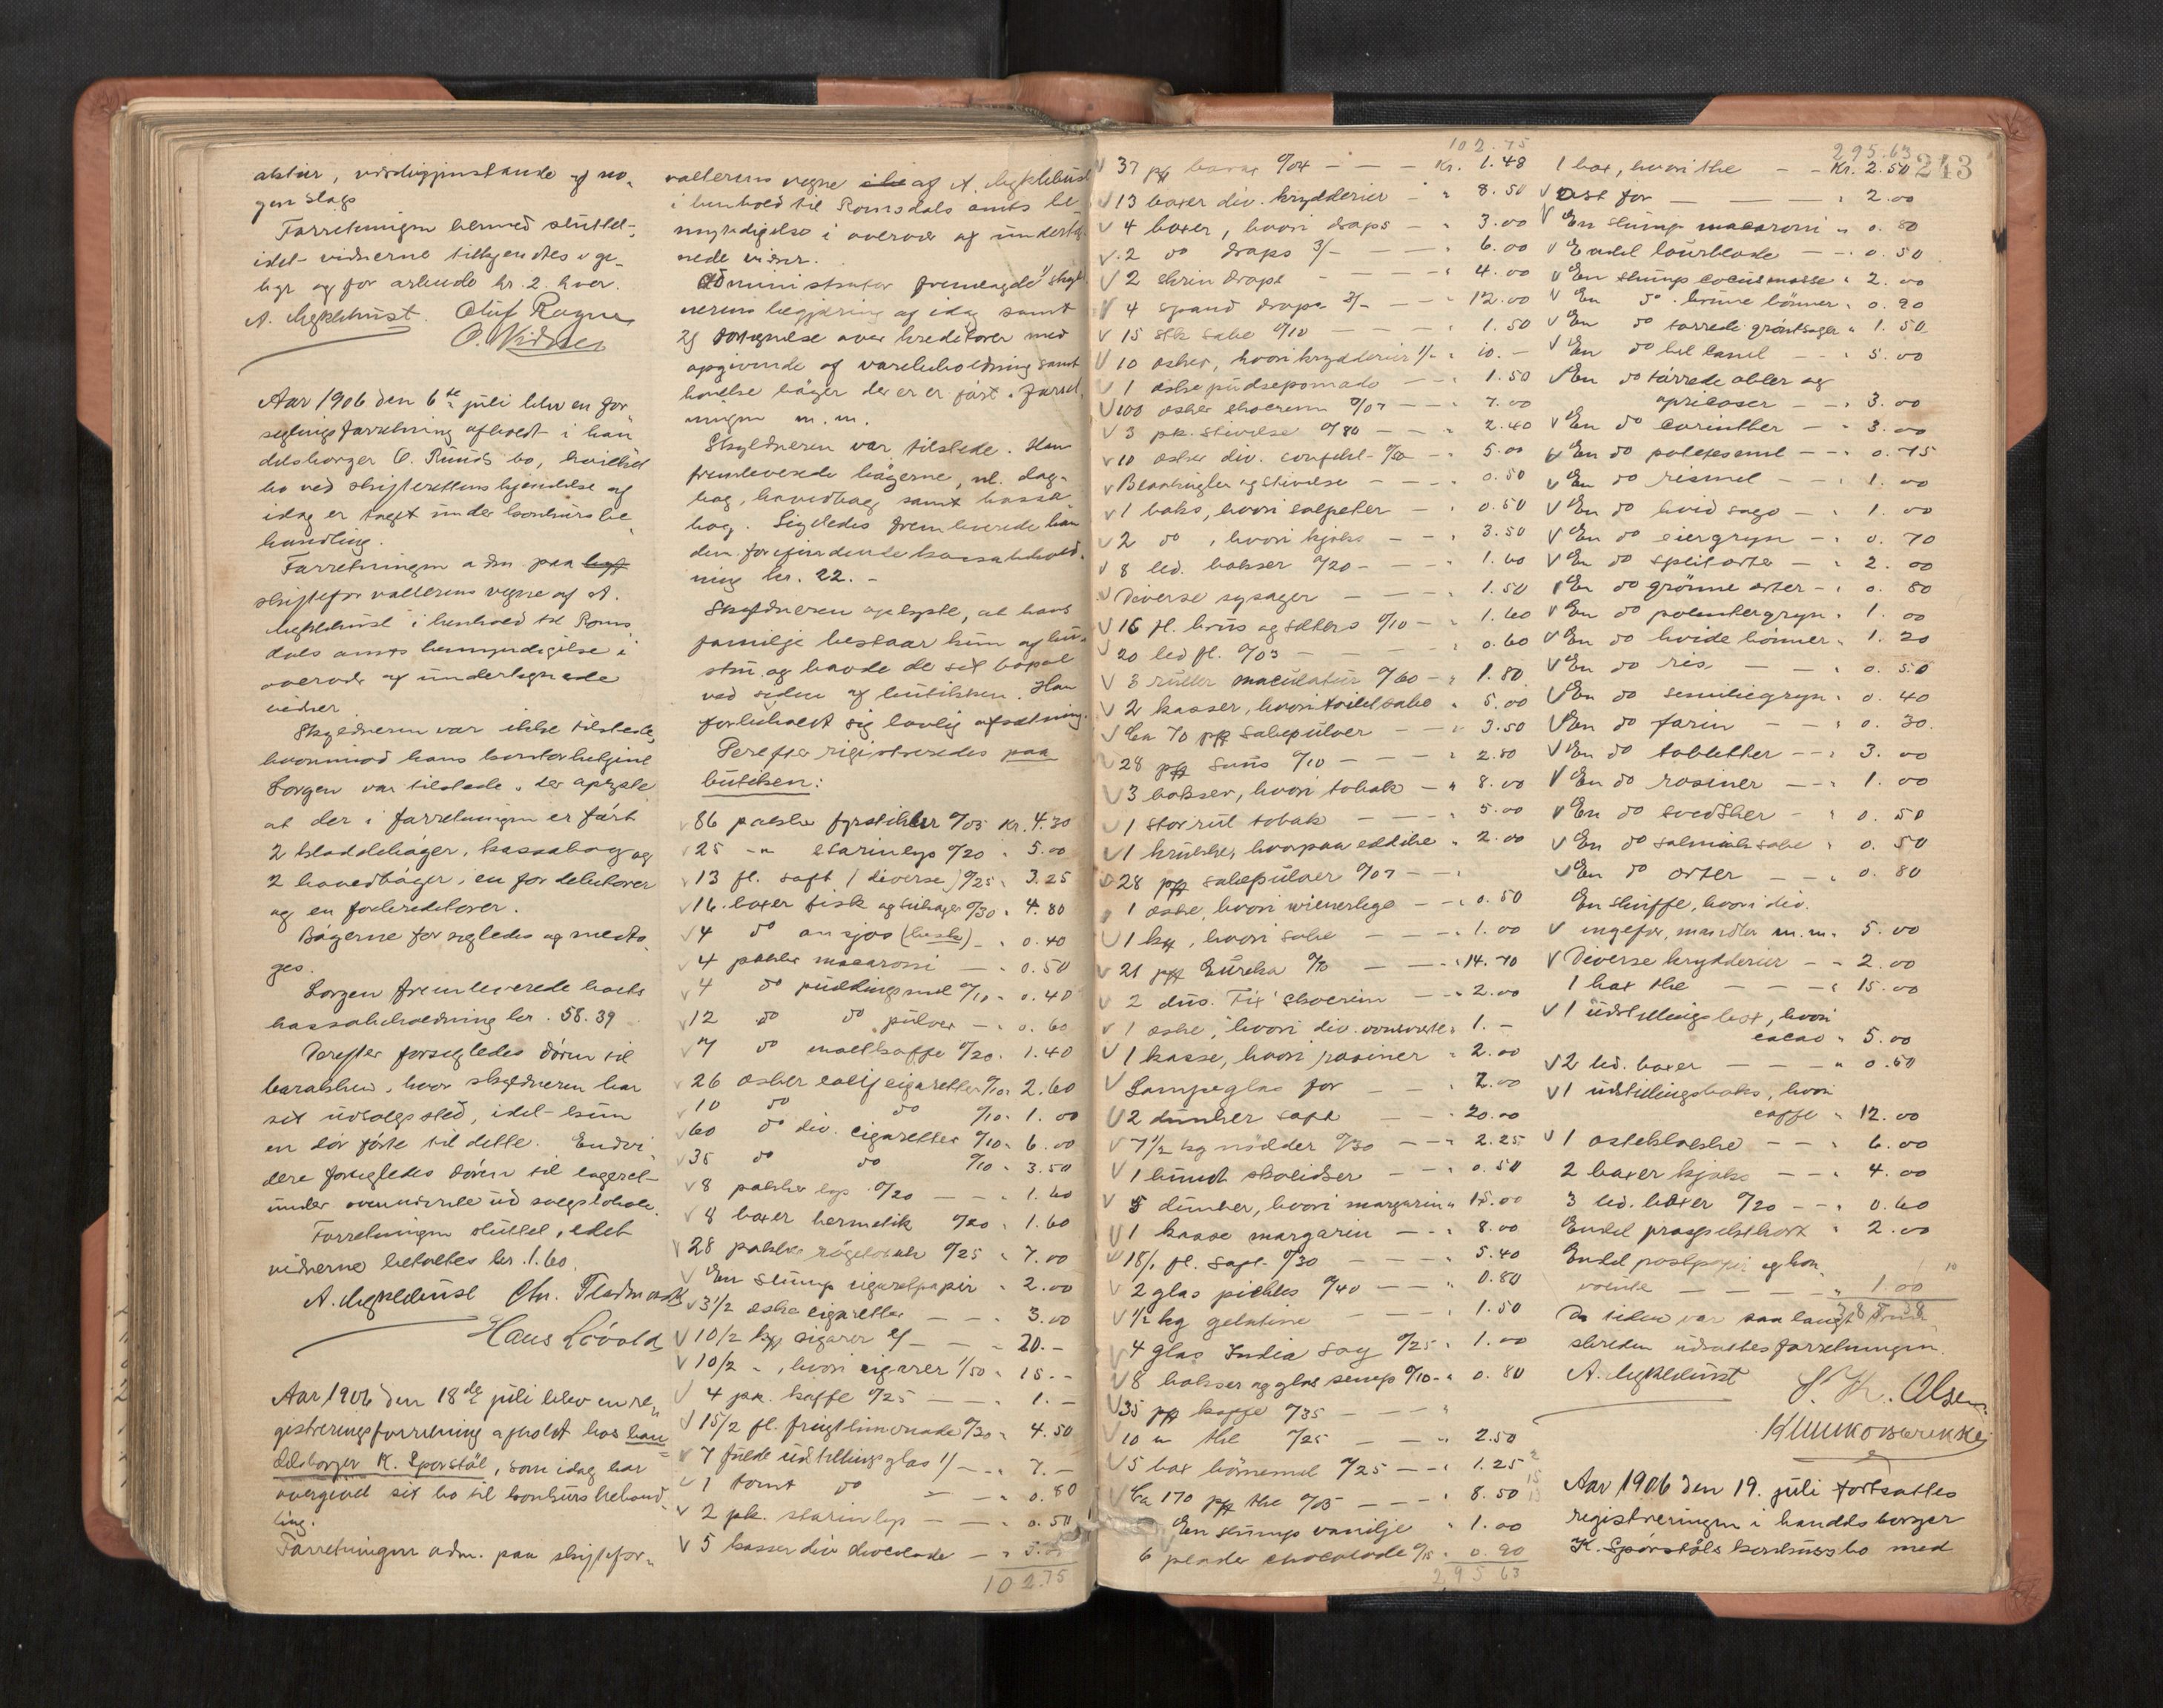 aktiur, værdigjenstande af no-
gen slags
Forretningen hermed sluttet,
idet vidnerne tilkjendtes 
 og for arbeide kr. 2. hver.
A. Myklebust. Oluf Ragnes
O. Vidnes
Aar 1906 den 6te juli blev en for-
seglingsforretning afholdt i han
delsborger O. Runds bo, hvilket
bo ved skifterettens kjendelse af
idag er taget under konkursbe
handling.
Forretningen adm. paa
skifteforvalterens vegne af A.
Myklebust i henhold til Roms
dals amts bemyndigelse i
overvær af undertegnede
vidner
Skyldneren var ikke tilstede,
hvorimod hans kontorbetjent
Sorgen var tilstede. der oplyste
at der i forretningen er ført
2 kladdebøger, kassabog og
2 hovedbøger, en for debitorer
og en for kreditorer.
Bøgerne forsegledes og medto-
ges.
Sorgen fremleverede
kassabeholdning kr. 58.39
Derefter forsegledes døren til
barakken, hvor skyldneren har
sit udsalgssted, idet kun
en dør førte til dette. Endvi-
dere forsegledes døren til lageret
under ud salgslokale.
Forretningen sluttet, idet
vidnerne betaltes kr. 1.60.
A. Myklebust Chr. Fladmark
Hans Løvold
Aar 1906 den 18de juli blev en re-
gistreringsforretning afholdt hos han-
delsborger K. Sporstøl, som idag har
overgivet sit bo til konkursbehand-
ling.
Forretningen adm. paa skiftefor-
valterens vegne af A. Myklebust
i henhold til Romsdals amts be-
myndigelse i overvær af underteg-
nede vidner.
Administrator fremlagde 1) skyld
nerens begjæring af idag samt
2) fortegnelse over kreditorer med
opgivende af varebeholdning samt
hvilke bøger der er ført i forret-
ningen m. m.
Skyldneren var tilstede. Han
fremleverede bøgerne, nl. dag-
bog, hovedbog samt kassa
bog. Ligeledes fremleverede han
den forefindende kassabehold-
ning kr. 22. -
Skyldneren oplyste, at hans
familje bestaar kun af hu-
stru, og havde de sit bopæl
ved siden af butikken. Han
forbeholdt sig lovlig afsætning.
Derefter registreredes paa
butiken:
86 pakke fyrstikker 0/05 Kr. 4.30
25 -"- stearinlys 0/20 " 5.00
13 fl. saft (diverse) 0/25 " 3.25
16 boxer fisk og 0/30 " 4.80
4 do ansjos (husk) - " 0.40
4 pakker macaroni — " 0.50
4 do puddingmel 0/10 " 0.40
12 do do pulver — " 0.60
7 do maltkaffe 0/20 " 1.40
26 æsker cigaretter 0/10 " 2.60
10 do do 0/10 " 1.00
60 do div. cigaretter 0/10 " 6.00
35 do do 0/10 " 3.50
8 pakker lys 0/20 — " 1.60
8 boxer hermetik 0/20 " 1.60
28 pakke røgetobak 0/25 " 7.00
En slump cigaretpapir " 2.00
3 1/2 æske cigaretter — — 3.00
10/2 kg cigarer 2/- — — 20.-
10/2 " , hvori cigarer 1/50 " 15.-
4 pk. kaffe 0/25 — — 1.-
15/2 fl. frugtlimonade 0/30 " 4.50
7 fulde udstillingsglas 1/- — " 7.-
1 tomt do — — " 0.80
2 pk. stearinlys — — " 0.50
5 kasser div chocolade — "
102.75
102.75
37 0/04 — — Kr. 1.48
13 boxer div. krydderier — " 8.50
4 boxer, hvori drops — " 3.00
2 do drops 3/- — — " 6.00
2 skrin drops — — — " 4.00
4 spand drops 3/- — — " 12.00
15 stk sæbe 0/10 — — " 1.50
10 æsker, hvori krydderier 1/- " 10.-
1 æske pudsepomade — " 1.50
100 æsker skocrem 0/07 — " 7.00
3 pk. stivelse 0/80 — — " 2.40
10 æsker div. confekt 0/50 — " 5.00
Blaakugler og stivelse — " 0.50
1 boks, hvori salpeter — " 0.50
2 do, hvori kjæks — — " 3.50
8 led. bokser 0/20 — — " 1.60
Diverse sysager — — " 1.50
16 fl. brus og selters 0/10 — " 1.60
20 led fl. 0/03 — — — " 0.60
3 ruller maculatur 0/60 — " 1.80
2 kasser, hvori toiletsæbe " 5.00
Ca 70 sæbepulver — — 3.50
28 snus 0/10 — — " 2.80
3 bokser, hvori tobak — " 8.00
1 stor rul tobak — — " 5.00
1 krukke, hvorpaa eddike " 2.00
28 sæbepulver 0/07 — "
1 æske, hvori wienerlys — " 0.50
1 , hvori sæbe — — " 1.00
21 Eureka 0/70 — — " 14.70
2 dus. Fix skocrem — — " 2.00
1 æske, hvori div. " 1.-
1 kasse, hvori rosiner " 2.00
Lampeglas for — — " 2.00
2 dunker saft — — " 20.00
7 1/2 kg nødder 0/30 — " 2.25
1 bundt skolidser — " 0.50
5 dunker, hvori margarin " 15.00
1 kasse margarin — " 8.00
18/1 fl. saft 0/30 — " 5.40
2 glas pickles 0/40 — " 0.80
1/2 kg gelatine — " 1.50
4 glas India soy 0/25 " 1.00
8 bokser og glas senep 0/10 " 0.80
35 kaffe 0/35 — "
10 " the 0/25 — " 2.50
5 box bønnemel 0/25 — " 1.25
Ca 170 the 0/05 — " 8.50
En slump vanilje " 1.00
6 plader chocolade 0/15 " 0.90
295 63
295.63
243
1 box, hvori the — - Kr. 2.50
Ost for — — — " 2.00
En slump macaroni " 0.80
Endel laurblade — " 0.50
En slump cocusmasse " 2.00
En do. brune bønner " 0.20
En do tørrede grøntsager " 1.50
En do hel canel — " 5.00
En do tørrede æbler og
apricoser — " 3.00
En do corinther — " 3.00
En do potetesmel — " 0.75
En do rismel — " 1.00
En do hvid sago — " 1.00
En do eiergryn — " 0.70
En do spliterter — " 2.00
En do grønne erter — " 0.80
En do polentergryn " 1.00
En do hvide bønner " 1.20
En do ris — — " 0.50
En do semuliegryn " 0.40
En do farin — — " 0.30
En do tobletter — " 3.00
En do rosiner — " 1.00
En do svedsker — " 0.50
En do salmiaksæbe " 0.50
En do erter — — " 0.80
En skuffe, hvori div.
ingefær, mandler m.m. 5.00
Diverse krydderier — " 2.00
1 box the — — " 15.00
1 udstillingsbox, hvori
cacao " 5.00
2 led. boxer — — " 0.50
1 udstillingsboks, hvori
caffe " 12.00
1 osteklokke — — " 6.00
2 boxer kjæks — — " 4.00
3 led. boxer 0/20 — " 0.60
Endel prospektkort " 2.00
Endel postpapir og kon-
volute — — — " 1.00
Da tiden var saa langt frem-
skreden udsattes forretningen.
A. Myklebust Olsen
Aar 1906 den 19. juli fortsattes
registreringen i handelsborger
K. Sporstøls konkursbo med